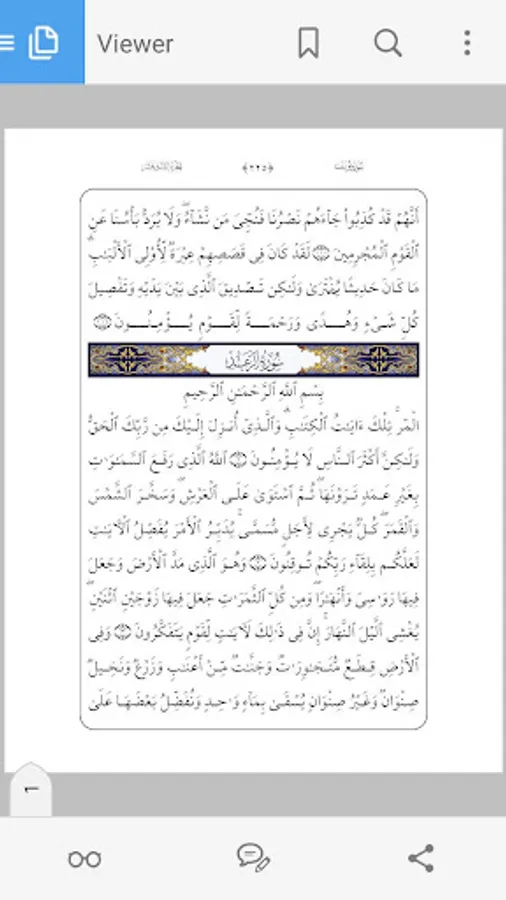 Viewer
﴿٢٢٥﴾
أَنَّهُمْ قَدْ كُذِبُوا۟ جَآءَهُمْ نَصْرُنَا فَنُجِّىَ مَن نَّشَآءُ ۖ وَلَا يُرَدُّ بَأْسُنَا عَنِ
ٱلْقَوْمِ ٱلْمُجْرِمِينَ لَقَدْ كَانَ فِى قَصَصِهِمْ عِبْرَةٌ لِّأُو۟لِى ٱلْأَلْبَـٰبِ ۗ
مَا كَانَ حَدِيثًا يُفْتَرَىٰ وَلَـٰكِن تَصْدِيقَ ٱلَّذِى بَيْنَ يَدَيْهِ وَتَفْصِيلَ
كُلِّ شَىْءٍ وَهُدًى وَرَحْمَةً لِّقَوْمٍ يُؤْمِنُونَ
سُورَةُ الرَّعْدِ
بِسْمِ ٱللَّهِ ٱلرَّحْمَـٰنِ ٱلرَّحِيمِ
الٓمٓر ۚ تِلْكَ ءَايَـٰتُ ٱلْكِتَـٰبِ ۗ وَٱلَّذِىٓ أُنزِلَ إِلَيْكَ مِن رَّبِّكَ ٱلْحَقُّ
وَلَـٰكِنَّ أَكْثَرَ ٱلنَّاسِ لَا يُؤْمِنُونَ ٱللَّهُ ٱلَّذِى رَفَعَ ٱلسَّمَـٰوَٰتِ
بِغَيْرِ عَمَدٍ تَرَوْنَهَا ۖ ثُمَّ ٱسْتَوَىٰ عَلَى ٱلْعَرْشِ ۖ وَسَخَّرَ ٱلشَّمْسَ
وَٱلْقَمَرَ ۖ كُلٌّ يَجْرِى لِأَجَلٍ مُّسَمًّى ۚ يُدَبِّرُ ٱلْأَمْرَ يُفَصِّلُ ٱلْـَٔايَـٰتِ
لَعَلَّكُم بِلِقَآءِ رَبِّكُمْ تُوقِنُونَ وَهُوَ ٱلَّذِى مَدَّ ٱلْأَرْضَ وَجَعَلَ
فِيهَا رَوَٰسِىَ وَأَنْهَـٰرًا ۖ وَمِن كُلِّ ٱلثَّمَرَٰتِ جَعَلَ فِيهَا زَوْجَيْنِ ٱثْنَيْنِ ۖ
يُغْشِى ٱلَّيْلَ ٱلنَّهَارَ ۚ إِنَّ فِى ذَٰلِكَ لَـَٔايَـٰتٍ لِّقَوْمٍ يَتَفَكَّرُونَ وَفِى
ٱلْأَرْضِ قِطَعٌ مُّتَجَـٰوِرَٰتٌ وَجَنَّـٰتٌ مِّنْ أَعْنَـٰبٍ وَزَرْعٌ وَنَخِيلٌ
صِنْوَانٌ وَغَيْرُ صِنْوَانٍ يُسْقَىٰ بِمَآءٍ وَٰحِدٍ وَنُفَضِّلُ بَعْضَهَا عَلَىٰ